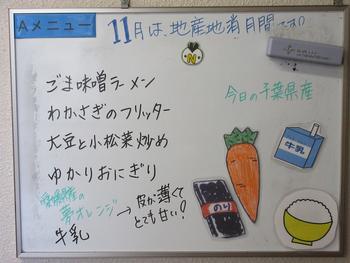 Aメニュー
11月は、地産地消月間です!!
N
ごま味噌ラーメン
わかさぎのフリッター
大豆と小松菜炒め
ゆかりおにぎり
愛媛県産の
夢オレンジ→皮が薄くてとても甘い!
牛乳
今日の千葉県産
牛乳
のり